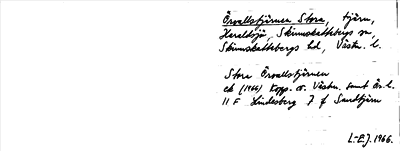 Örvallstjärnen Stora, tjärn,
Hereltsjö, Skinnskattebergs sn,
Skinnskattebergs hd, Västm. l.
Stora Örvallstjärnen
ek (1966) Kopp. o. Västm. samt Ör. l.
11 F Lindesberg 7 f Sandtjärn
L-E.J. 1966.